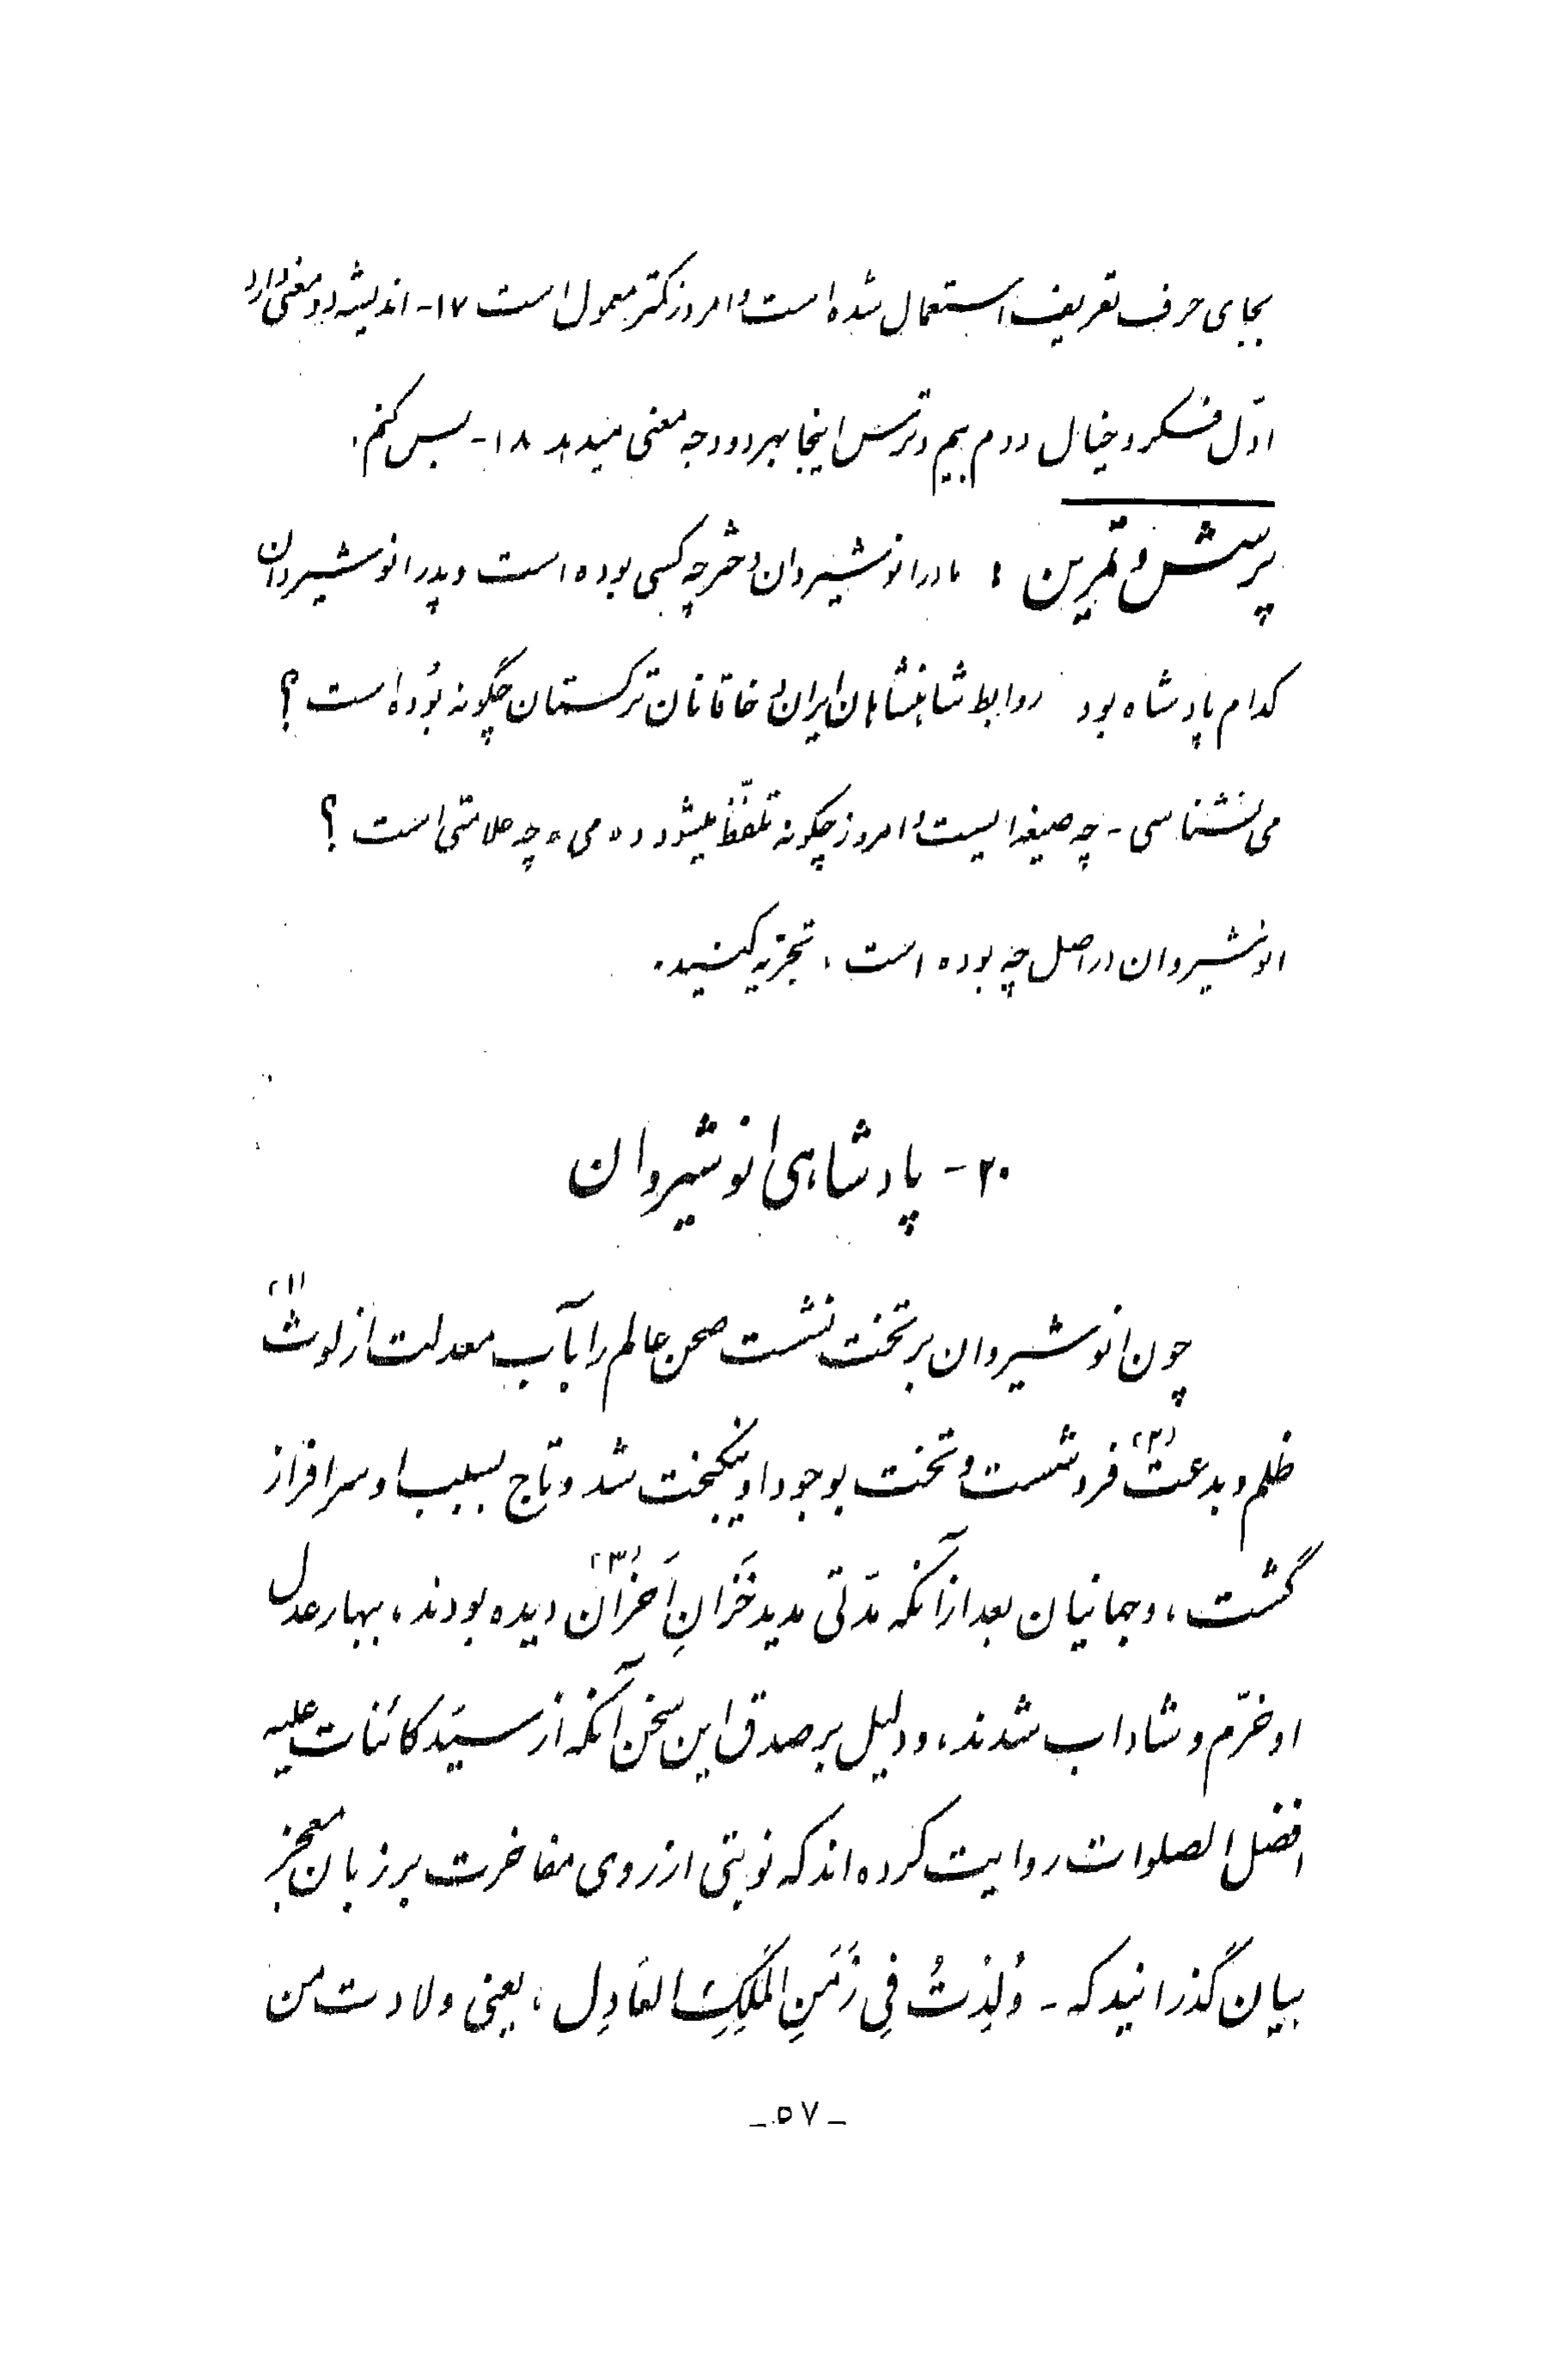 بجای حرف تعریف استعمال شده است و امروز کمتر معمول است ۱۷- اندیشه دو معنی دارد
اوّل فکر و خیال دوم بیم و ترس اینجا بهر دو وجه معنی میدهد ۱۸- بس کنم.
پرسش و تمرین : مادر انوشیروان دختر چه کسی بوده است و پدر انوشیروان
کدام پادشاه بود روابط شاهنشاهان ایران و خاقانان ترکستان چگونه بُوده است ؟
می نشناسی - چه صیغه ایست و امروز چگونه تلفّظ میشود و ه می ه چه علامتی است ؟
انوشیروان در اصل چه بوده است ، تجزیه کنید.
۲۰- پادشاهی انوشیروان
چون انوشیروان بر تخت نشست صحن عالم را بآب معدلت از لوث (۱)
ظلم و بدعت (۲) فرو شست و تخت بوجود او نیکبخت شد و تاج بسبب او سرافراز
گشت ، و جهانیان بعد از آنکه مدّتی مدید خَزانِ اَحزان (۳) دیده بودند ، ببهار عدل
او خرّم و شاداب شدند ، و دلیل بر صدق این سخن آنکه از سیّد کائنات علیه
افضل الصلوات روایت کرده اند که نوبتی از روی مفاخرت بر زبان معجز
بیان گذرانید که - وُلِدْتُ فِی زَمَنِ المَلِکِ العَادِل ، یعنی ولادت من
- ۵۷ -